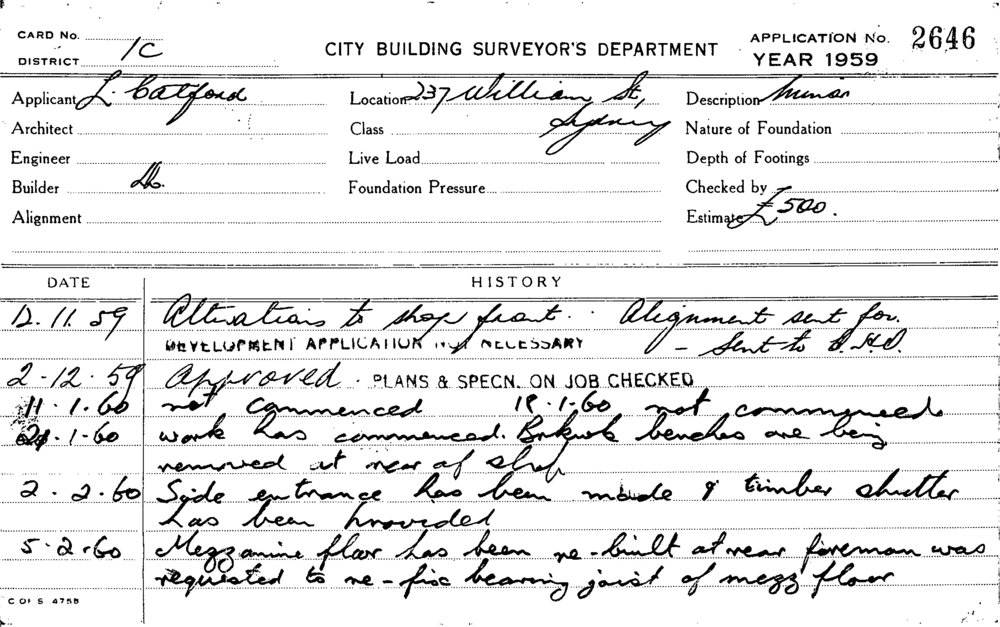 CARD No.
DISTRICT 1C
CITY BUILDING SURVEYOR'S DEPARTMENT
APPLICATION No. 2646
YEAR 1959
Applicant L. Catford
Location 237 William St,
Sydney
Description Minor
Architect
Class
Nature of Foundation
Engineer
Live Load
Depth of Footings
Builder Do.
Foundation Pressure
Checked by
Alignment
Estimate £500.
DATE HISTORY
12. 11. 59 Alterations to shop front. Alignment sent for.
DEVELOPMENT APPLICATION NOT NECESSARY - Sent to
2-12-59 Approved. PLANS & SPECN. ON JOB CHECKED
11.1.60 not commenced 18.1.60 not commenced
21.1.60 work has commenced. Brkwk benches are being
removed at rear of shop
2.2.60 Side entrance has been made & timber shutter
has been provided
5.2.60 Mezzanine floor has been re-built at rear foreman was
requested to re-fix bearing joist of mezz floor
C OF S 475B